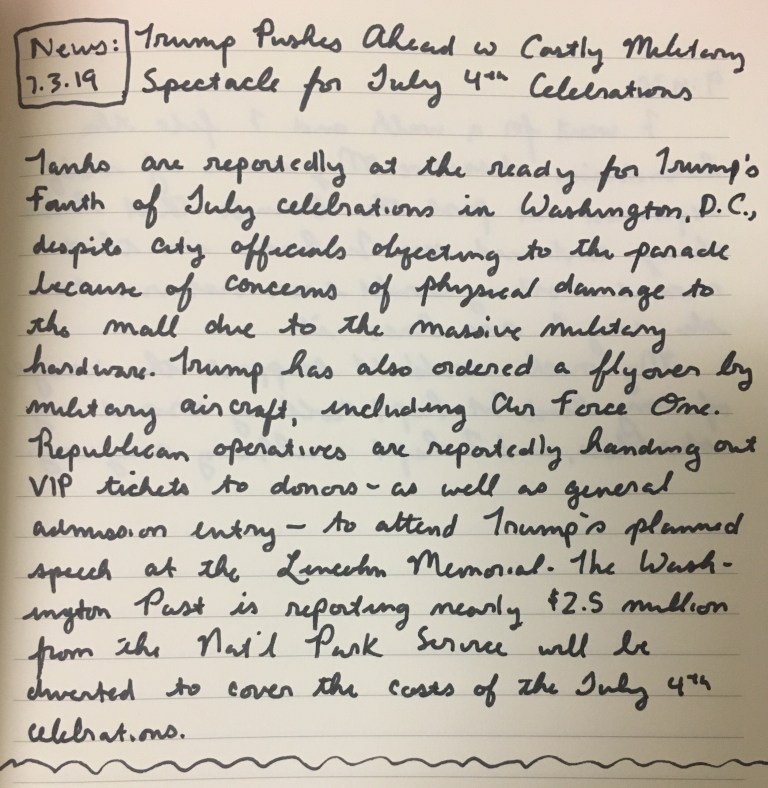 News: Trump Pushes Ahead w Costly Military
7.3.19 Spectacle for July 4th Celebrations
Tanks are reportedly at the ready for Trump's
Fourth of July celebrations in Washington, D.C.,
despite city officials objecting to the parade
because of concerns of physical damage to
the mall due to the massive military
hardware. Trump has also ordered a flyover by
military aircraft, including Air Force One.
Republican operatives are reportedly handing out
VIP tickets to donors - as well as general
admission entry - to attend Trump's planned
speech at the Lincoln Memorial. The Wash-
ington Post is reporting nearly $2.5 million
from the Nat'l Park Service will be
diverted to cover the costs of the July 4th
celebrations.